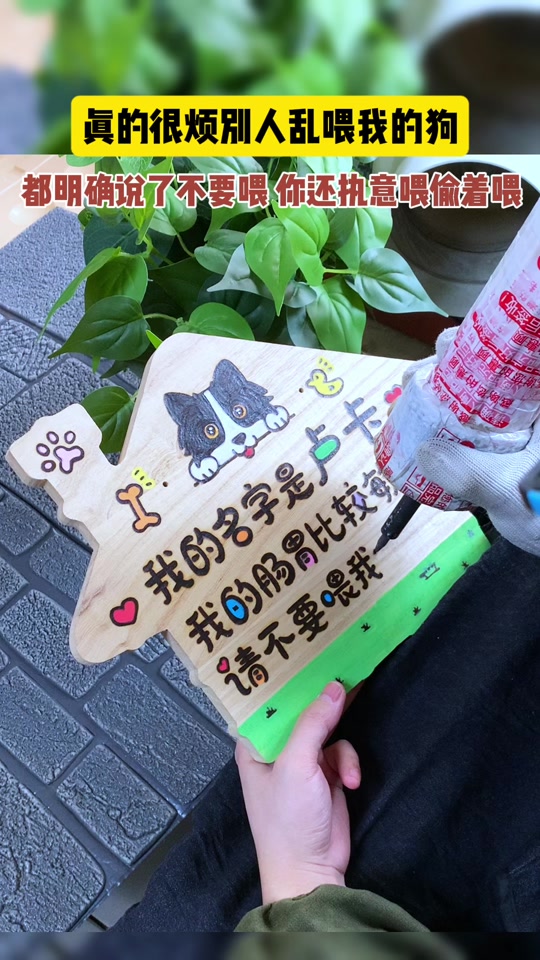 眞的很烦别人乱喂我的狗
都明确说了不要喂 你还执意喂偷着喂
我的名字是卢卡
我的肠胃比较敏
请不要喂我